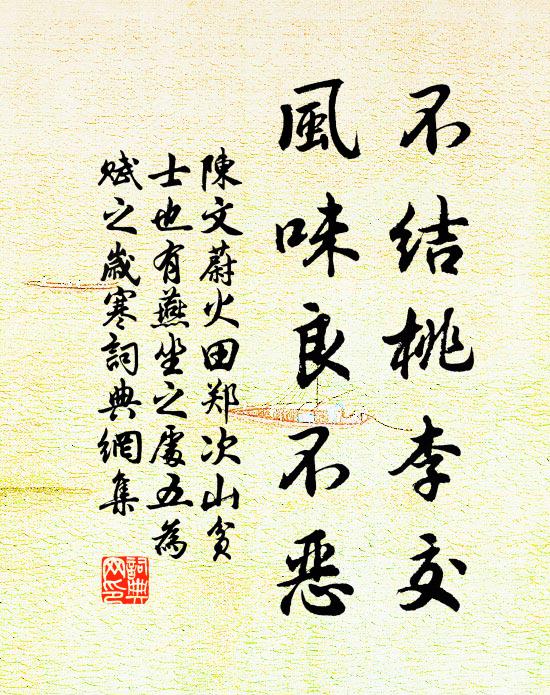 不结桃李交
風味良不惡
陳文蔚火田郑次山贫
士也有燕坐之處五為
赋之歲寒詞典網集
詞典网印